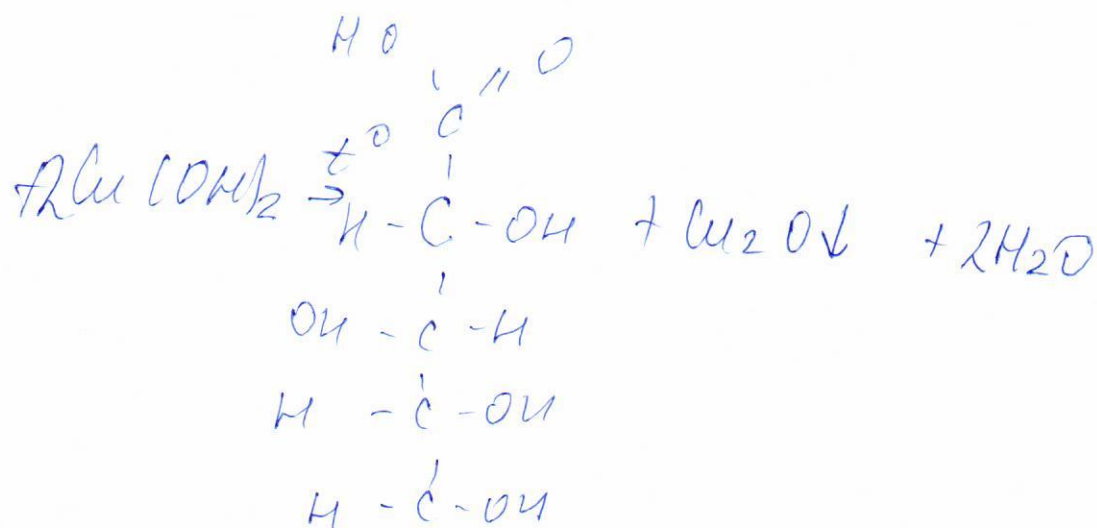 HO
C = O
+2Cu(OH)₂ t° → H - C - OH + Cu₂O↓ + 2H₂O
OH - C - H
H - C - OH
H - C - OH